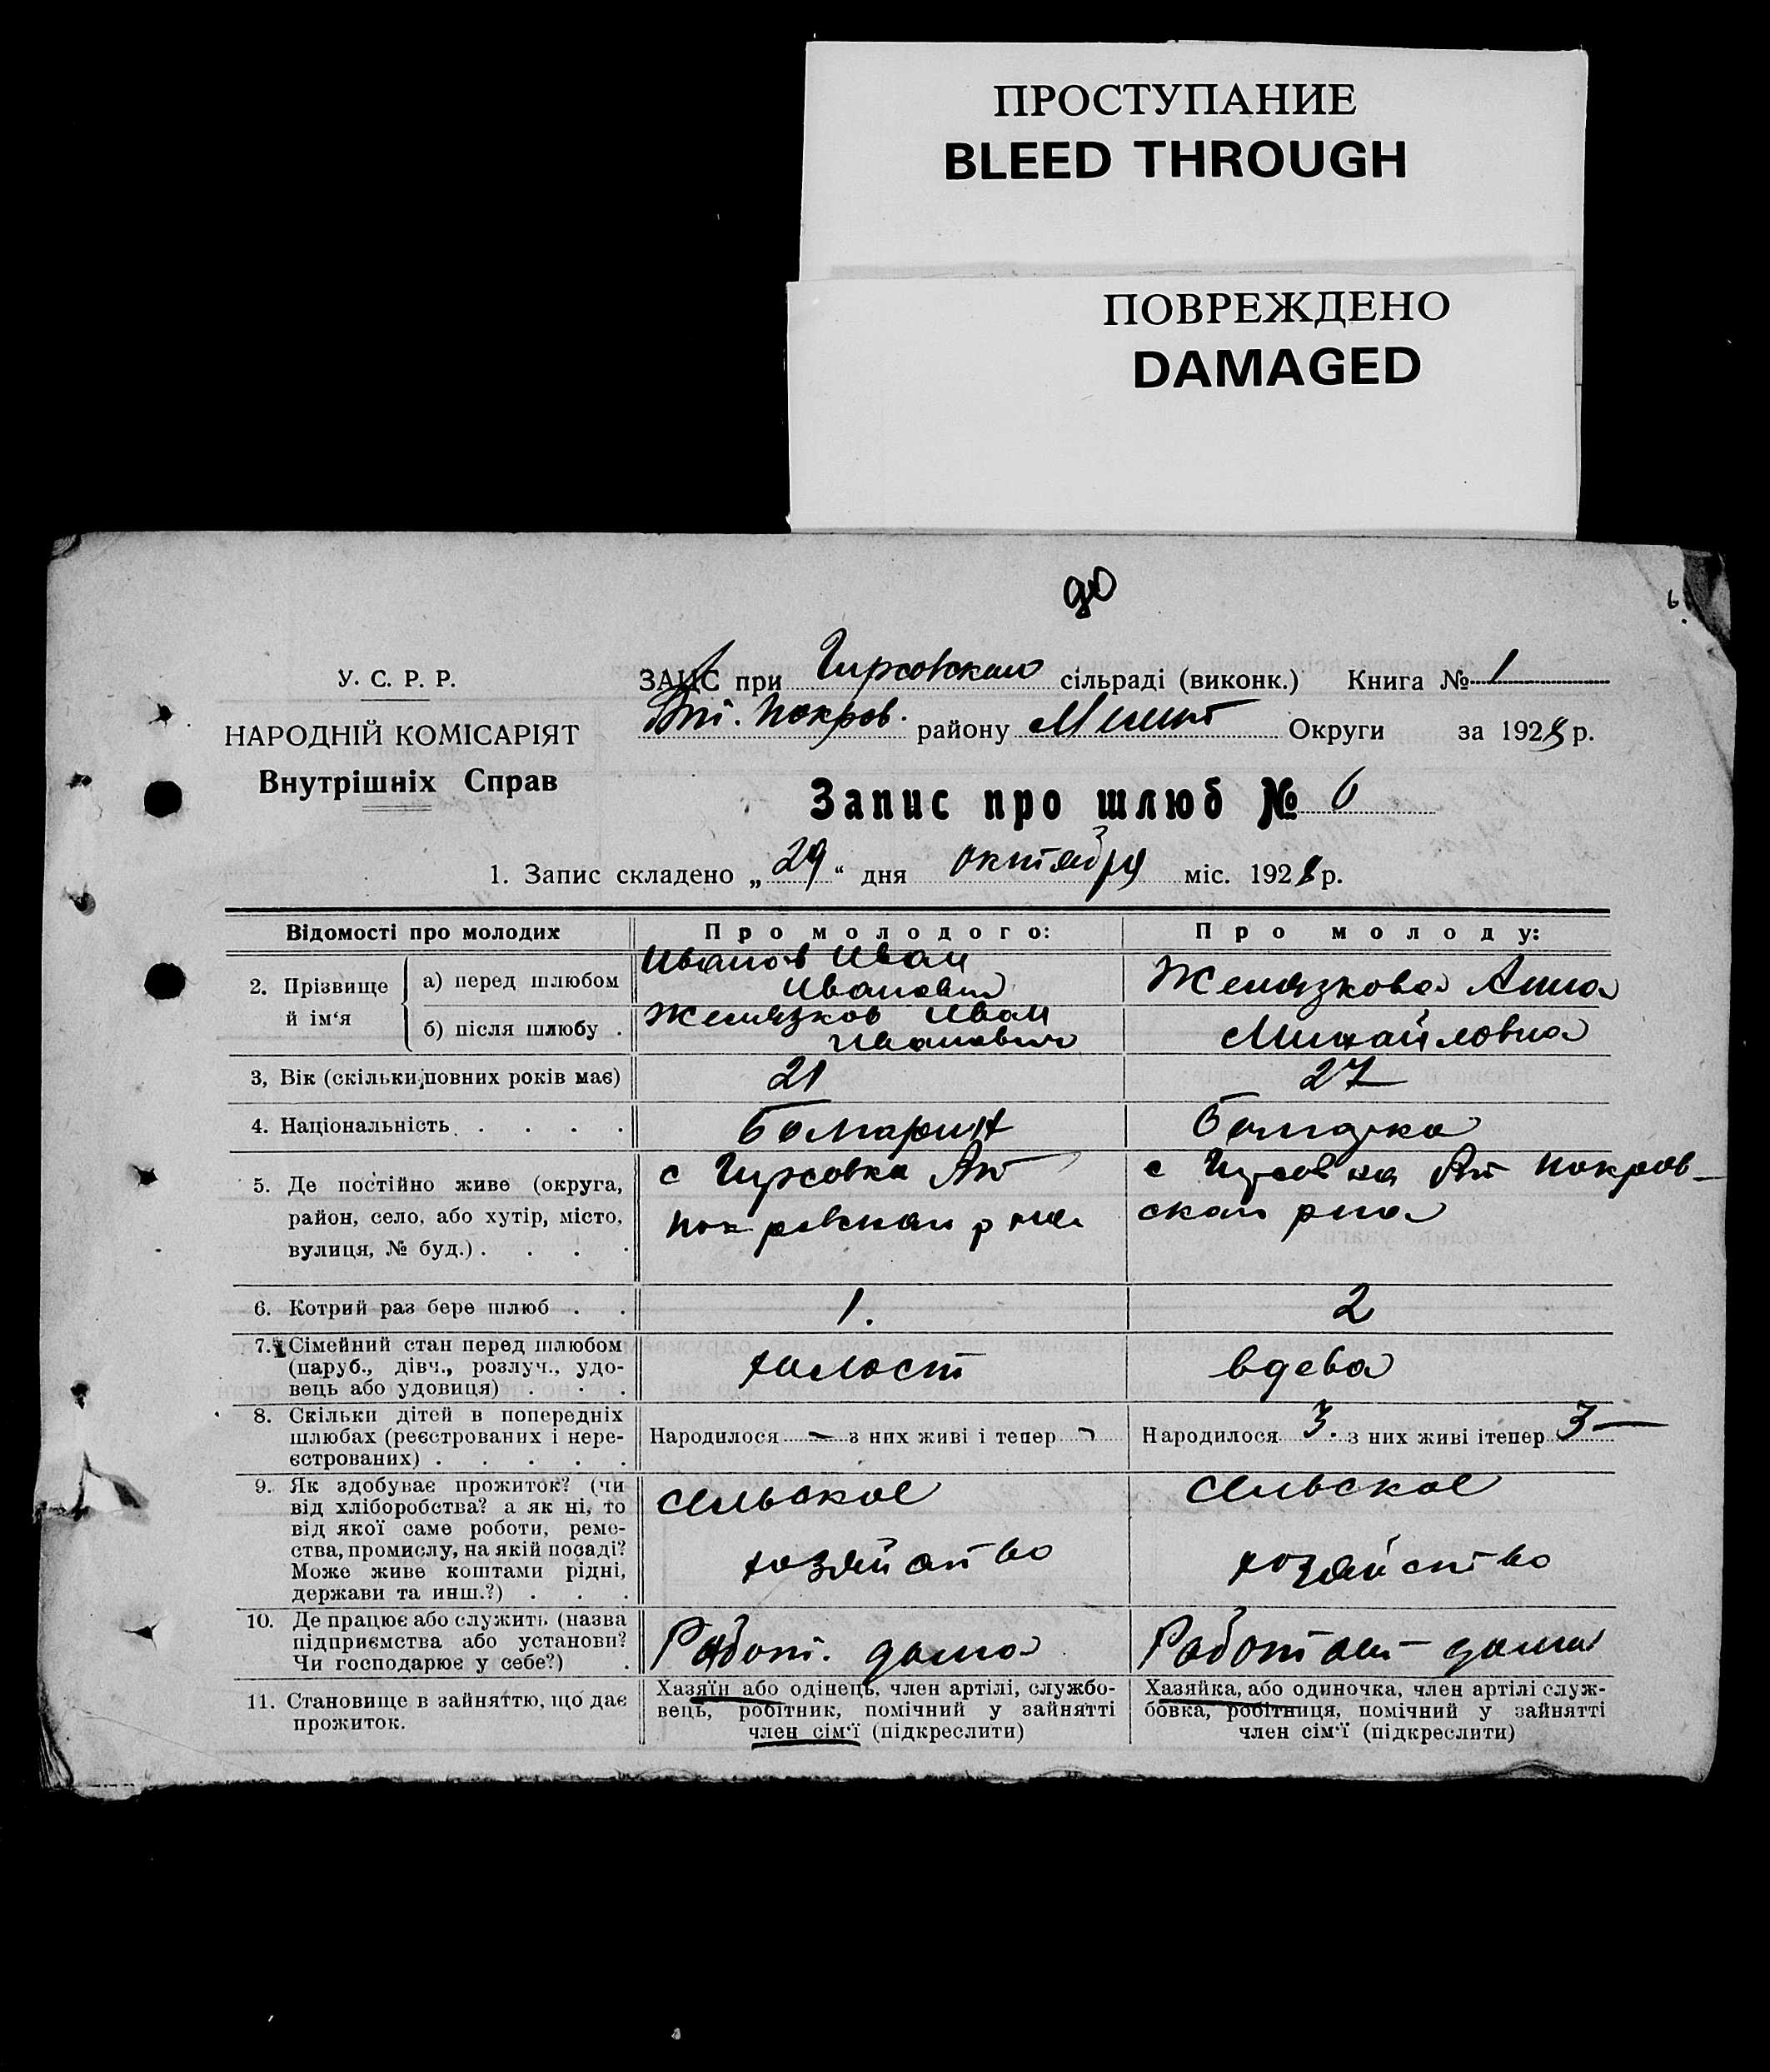 ПРОСТУПАНИЕ
BLEED THROUGH
ПОВРЕЖДЕНО
DAMAGED
У. С. Р. Р.
НАРОДНІЙ КОМІСАРІЯТ
Внутрішніх Справ
ЗАЦС при Гирсовском сільраді (виконк.) Книга № 1
Покров. району Мелит Округи за 1928 р.
Запис про шлюб № 6
1. Запис складено „29“ дня октября міс. 1928 р.
Відомості про молодих
Про молодого:
Про молоду:
2. Прізвище й ім‘я
а) перед шлюбом
Иванов Иван
Иванович
Желязкова Анна
б) після шлюбу .
Желязков Иван
Иванович
Михайловна
3, Вік (скільки повних років має)
21
27
4. Національність . . . .
Болгарин
Болгарка
5. Де постійно живе (округа,
район, село, або хутір, місто,
вулиця, № буд.) . . . .
с Гирсовка Ат
покровскаи рна
с Гирсовка Ат покров-
скаи рна
6. Котрий раз бере шлюб . .
1.
2
7. Сімейний стан перед шлюбом
(паруб., дівч., розлуч., удо-
вець або удовиця) . . .
холост
вдова
8. Скільки дітей в попередніх
шлюбах (реєстрованих і нере-
єстрованих) . . . . .
Народилося - з них живі і тепер -
Народилося 3. з них живі ітепер 3-
9. Як здобуває прожиток? (чи
від хліборобства? а як ні, то
від якої саме роботи, реме-
ства, промислу, на якій посаді?
Може живе коштами рідні,
держави та инш.?) . . .
сельское
хозяйство
сельское
хозяйство
10. Де працює або служить (назва
підприємства або установи?
Чи господарює у себе?) .
Работ. дома
Работает дома
11. Становище в зайняттю, що дає
прожиток.
Хазяїн або одінець, член артілі, службо-
вець, робітник, помічний у зайнятті
член сім‘ї (підкреслити)
Хазяйка, або одиночка, член артілі служ-
бовка, робітниця, помічний у зайнятті
член сім‘ї (підкреслити)